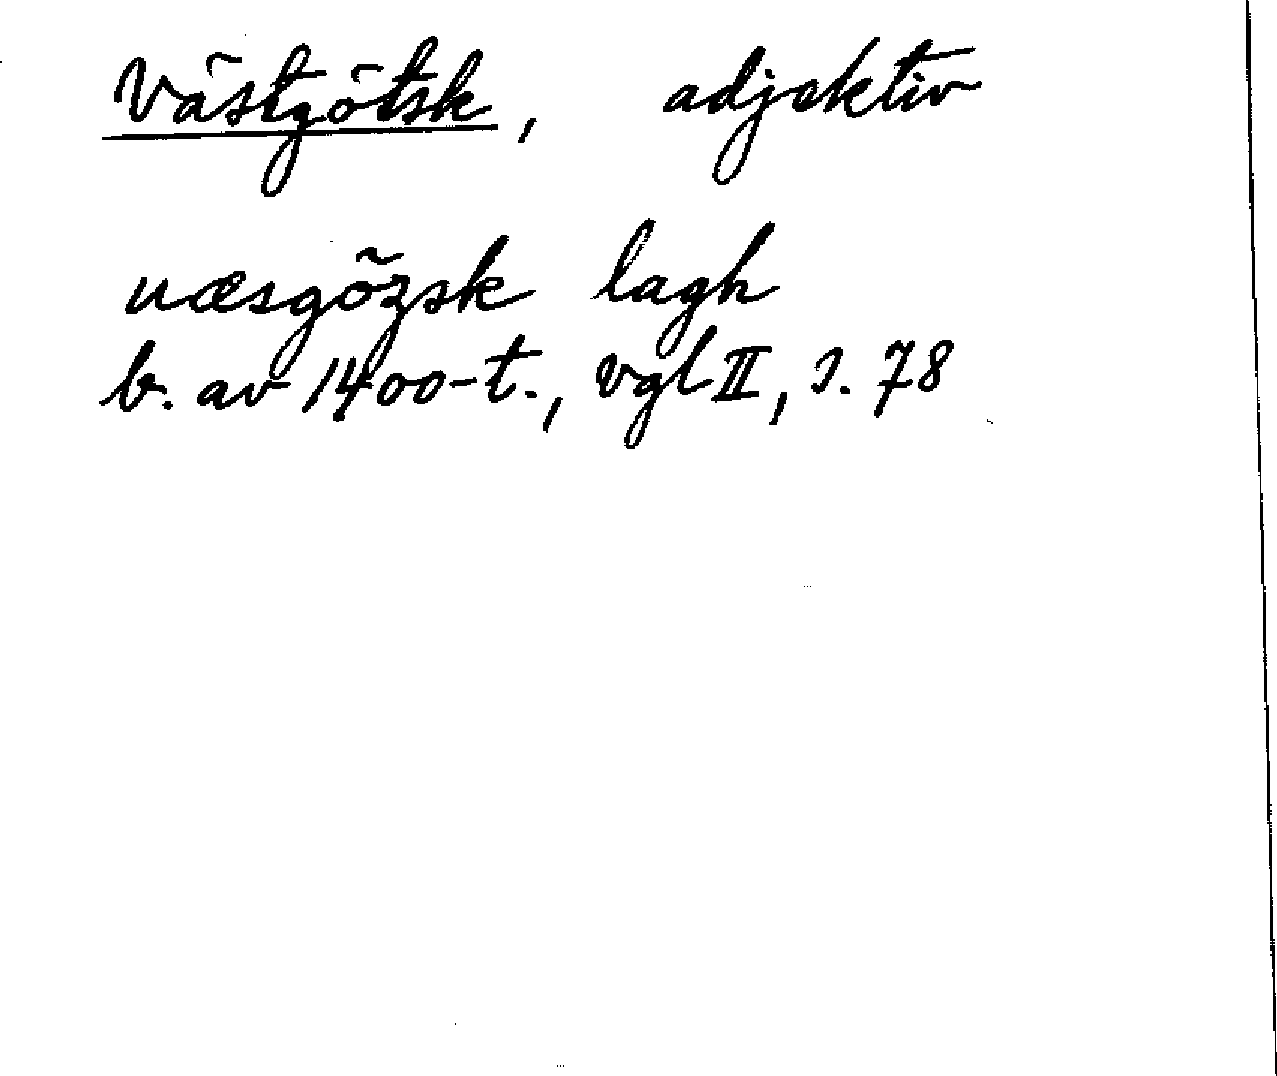 Västgötsk, adjektiv
uæsgözsk lagh
b. av 1400-t., vgl II, s. 78